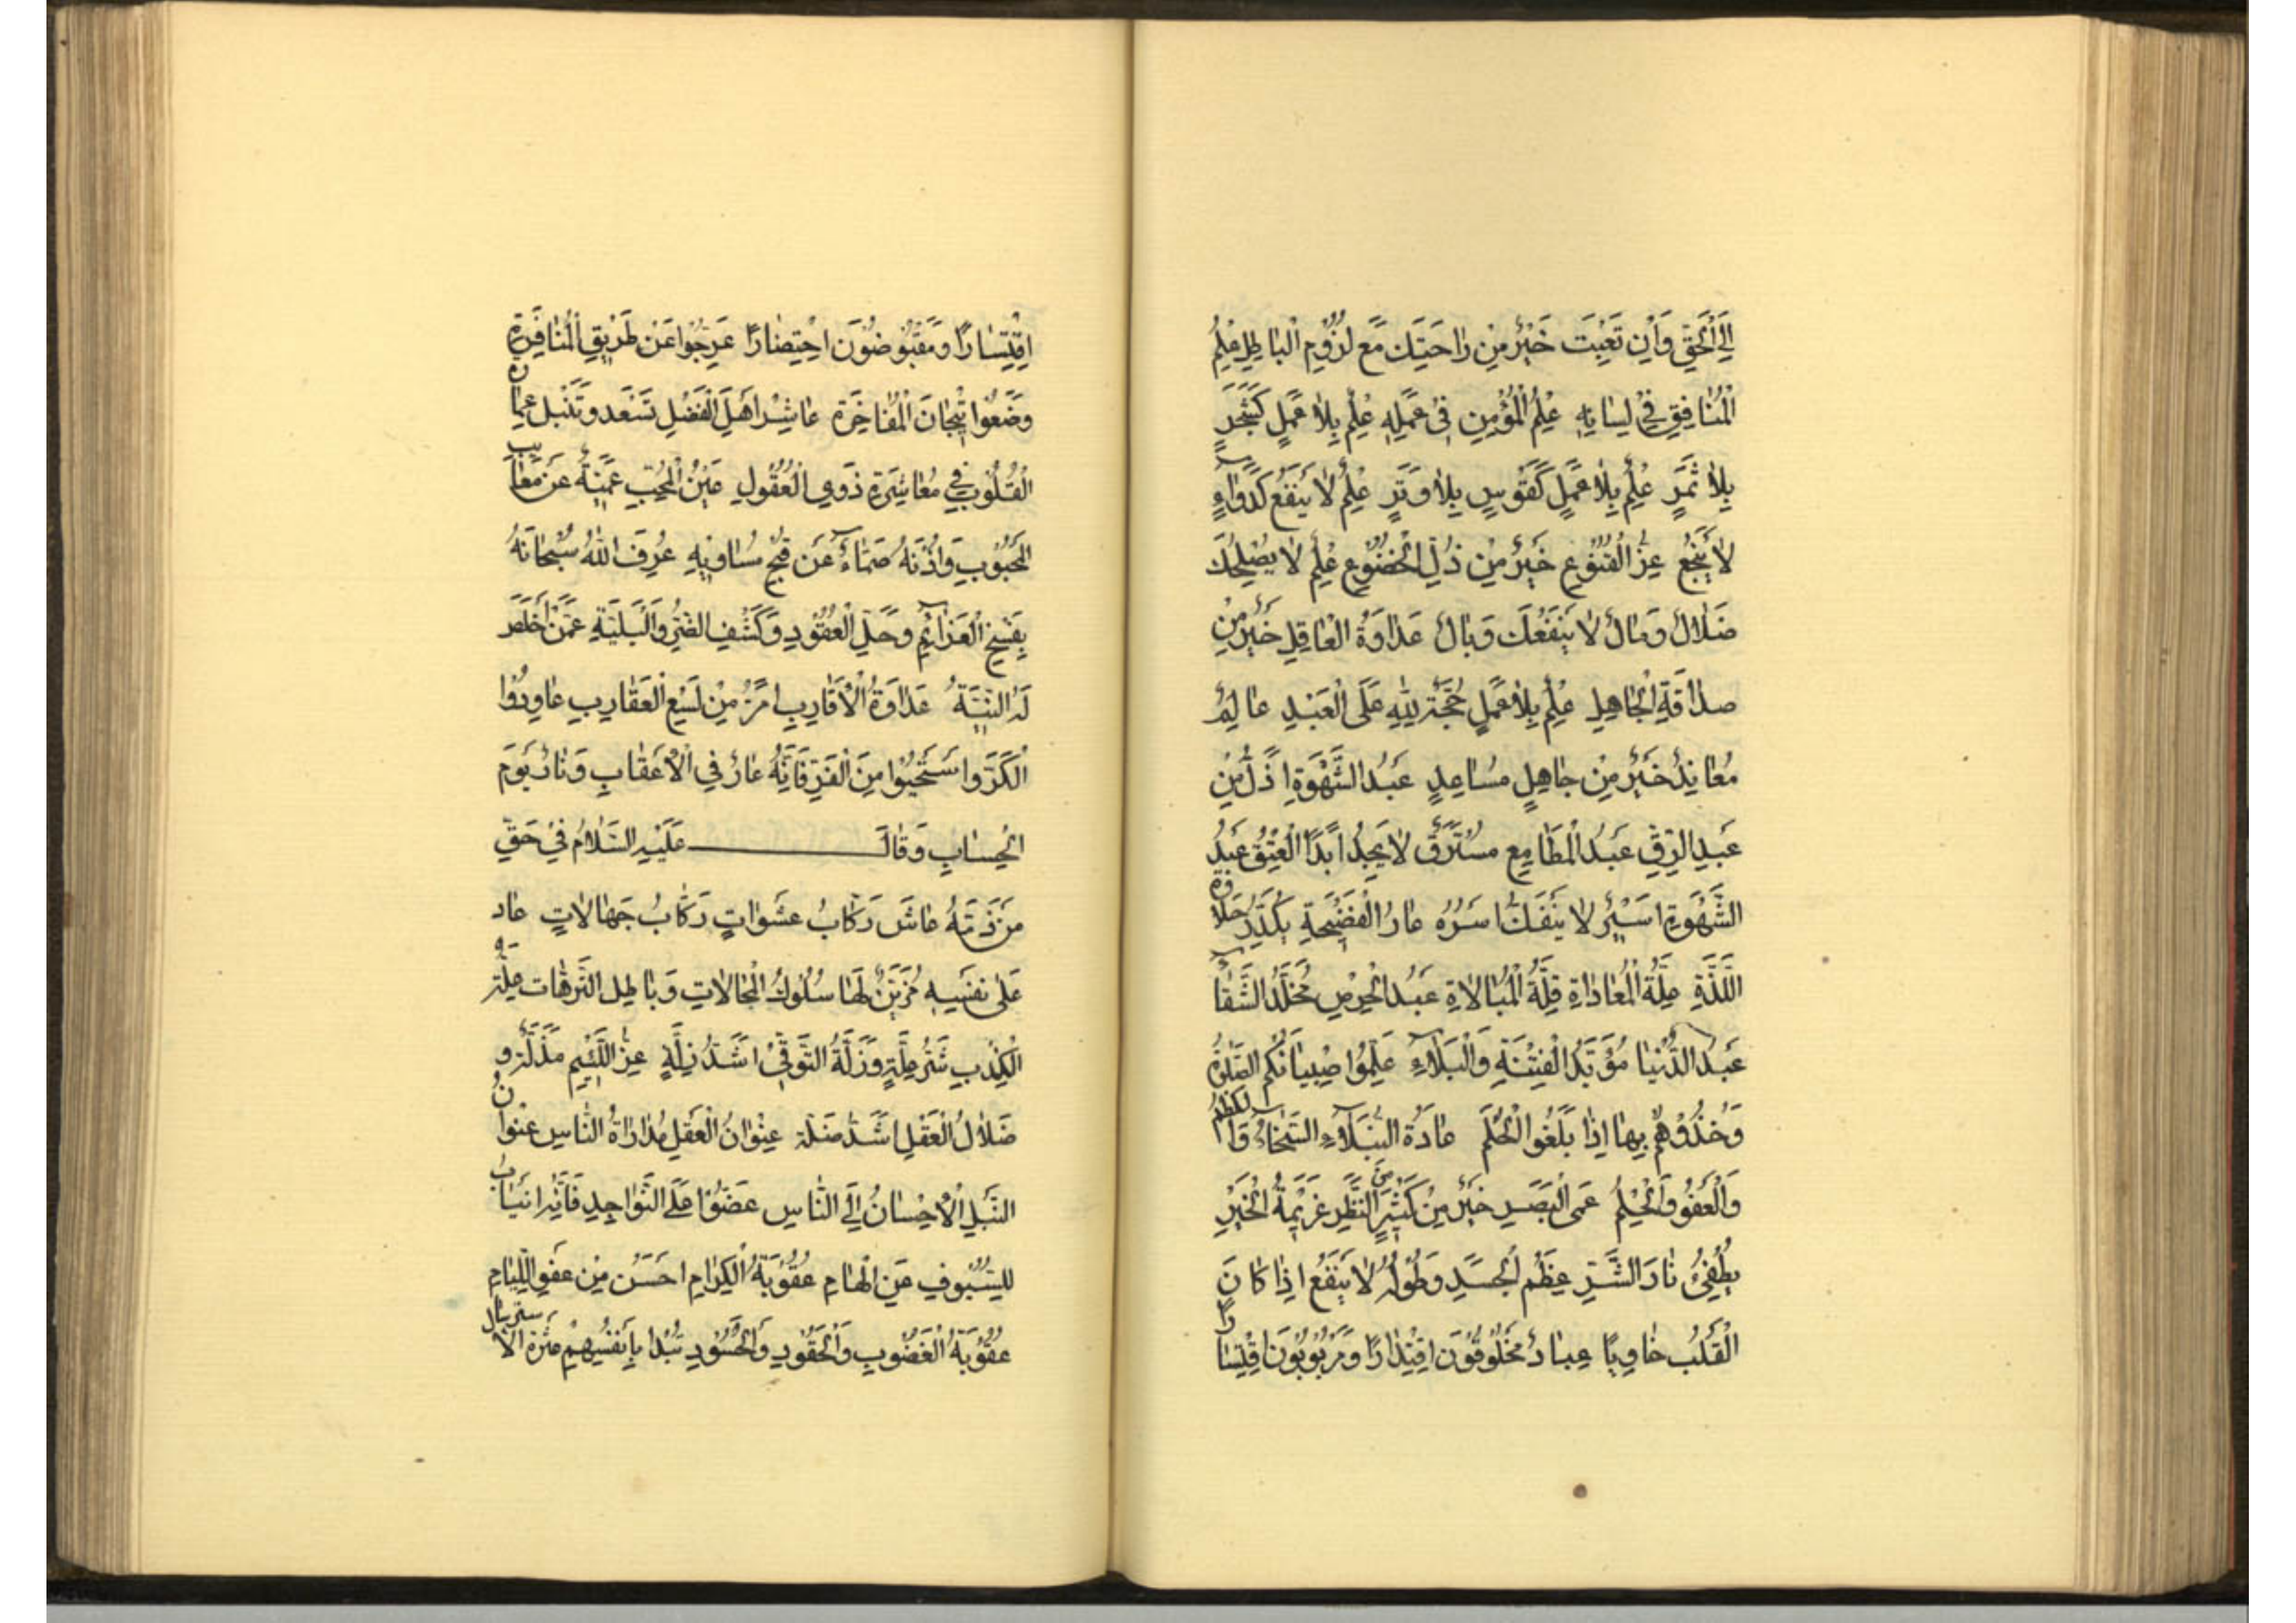 اِلَى الْحَقِّ وَاِنْ تَعِبْتَ خَيْرٌ مِنْ رٰاحَتِكَ مَعَ لُزُوْمِ الْبٰاطِلِ عِلْمُ
الْمُنٰافِقِ فِيْ لِسٰانِهِ عِلْمُ الْمُؤْمِنِ فِيْ عَمَلِهِ عِلْمٌ بِلاٰ عَمَلٍ كَشَجَرٍ
بِلاٰ ثَمَرٍ عِلْمٌ بِلاٰ عَمَلٍ كَقَوْسٍ بِلاٰ وَتَرٍ عِلْمٌ لاٰ يَنْفَعُ كَدَوٰاءٍ
لاٰ يَنْجَعُ عِزُّ الْقُنُوْعِ خَيْرٌ مِنْ ذُلِّ الْخُضُوْعِ عِلْمٌ لاٰ يُصْلِحُكَ
ضَلاٰلٌ وَمٰالٌ لاٰ يَنْفَعُكَ وَبٰالٌ عَدٰاوَةُ الْعٰاقِلِ خَيْرٌ مِنْ
صدٰاقَةِ الْجٰاهِلِ عِلْمٌ بِلاٰ عَمَلٍ حُجَّةٌ لِلّٰهِ عَلَى الْعَبْدِ عٰالِمٌ
مُعٰانِدٌ خَيْرٌ مِنْ جٰاهِلٍ مُسٰاعِدٍ عَبْدُ الشَّهْوَةِ اَذَلُّ مِنْ
عَبْدِ الرِّقِّ عَبْدُ الْمَطٰامِعِ مُسْتَرَقٌّ لاٰ يَجِدُ اَبَدًا الْعِتْقَ عَبْدُ
الشَّهْوَةِ اَسِيْرٌ لاٰ يَنْفَكُّ اَسْرُهُ عٰارُ الْفَضِيْحَةِ يُكَدِّرُ حَلاٰوَةَ
اللَّذَّةِ عِلَّةُ الْمُعٰادٰاةِ قِلَّةُ الْمُبٰالاٰةِ عَبْدُ الْحِرْصِ مُخَلَّدُ الشَّقٰاءِ
عَبْدُ الدُّنْيٰا مُؤَبَّدُ الْفِتْنَةِ وَالْبَلاٰءِ عَلِّمُوْا صِبْيٰانَكُمُ الصَّلٰوةَ
وَخُذُوْهُمْ بِهٰا اِذٰا بَلَغُوا الْحُلُمَ عٰادَةُ النُّبَلاٰءِ السَّخٰاءُ وَالْكَظْمُ
وَالْعَفْوُ وَالْحِلْمُ عَمَى الْبَصَرِ خَيْرٌ مِنْ كَثِيْرٍ مِنَ النَّظَرِ عَزِيْمَةُ الْخَيْرِ
تُطْفِئُ نٰارَ الشَّرِّ عِظَمُ الْجَسَدِ وَطُوْلُهُ لاٰ يَنْفَعُ اِذٰا كٰانَ
الْقَلْبُ خٰاوِيًا عِبٰادٌ مَخْلُوْقُوْنَ اقْتِدٰارًا وَمَرْبُوْبُوْنَ اقْتِسٰارًا
اِقْتِسٰارًا وَمَقْبُوْضُوْنَ احْتِضٰارًا عَرِّجُوْا عَنْ طَرِيْقِ الْمُنٰافَرَةِ
وَضَعُوْا تِيْجٰانَ الْمُفٰاخَرَةِ عٰاشِرْ اَهْلَ الْفَضْلِ تَسْعَد وَتَنْبُل عِمٰارَةُ
الْقُلُوْبِ فِيْ مُعٰاشَرَةِ ذَوِي الْعُقُوْلِ عَيْنُ الْمُحِبِّ عَمِيَةٌ عَنْ مَعٰايِبِ
الْمَحْبُوْبِ وَاُذُنُهُ صَمّٰاءُ عَنْ قُبْحِ مَسٰاوِيْهِ عُرِفَ اللّٰهُ سُبْحٰانَهُ
بِفَسْخِ الْعَزٰائِمِ وَحَلِّ الْعُقُوْدِ وَكَشْفِ الضُّرِّ وَالْبَلِيَّةِ عَمَّنْ اَخْلَصَ
لَهُ النِّيَّةَ عَدٰاوَةُ الْاَقٰارِبِ اَمَرُّ مِنْ لَسْعِ الْعَقٰارِبِ عٰاوِدُوْا
الْكَرَّ وَاسْتَحْيُوْا مِنَ الْفَرِّ فَاِنَّهُ عٰارٌ فِي الْاَعْقٰابِ وَنٰارٌ يَوْمَ
الْحِسٰابِ وَقٰالَ عَلَيْهِ السَّلاٰمُ فِيْ حَقِّ
مَنْ ذَمَّهُ عٰاشٍ رَكّٰابُ عَشَوٰاتٍ رَكّٰابُ جَهٰالاٰتٍ عٰاد
عَلٰى نَفْسِهِ مُزَيِّنٌ لَهٰا سُلُوْكَ الْمُحٰالاٰتِ وَبٰاطِلَ التُّرَّهٰات عِلَّةُ
الْكِذْبِ شَرُّ عِلَّةٍ وَزَلَّةُ الْتَّوَقِّيْ اَشَدُّ زَلَّةٍ عِزُّ اللَّئِيْمِ مَذَلَّةٌ وَ
ضَلاٰلُ الْعَقْلِ اَشَدُّ ضَلَّة عِنْوٰانُ الْعَقْلِ مُدٰارٰاةُ النّٰاسِ عِنْوٰانُ
النُّبْلِ الْاِحْسٰانُ اِلَى النّٰاسِ عَضُّوْا عَلَى النَّوٰاجِدِ فَاِنَّهُ اَنْبٰى
لِلسُّيُوْفِ عَنِ الْهٰامِ عُقُوْبَةُ الْكِرٰامِ اَحْسَنُ مِنْ عَفْوِ اللِّئٰامِ
عُقُوْبَةُ الْغَضُوْبِ وَالْحَقُوْدِ وَالْحَسُوْدِ تُبْدَا بِاَنْفُسِهِمْ عَثْرَة الْاِسْتِرْسٰال